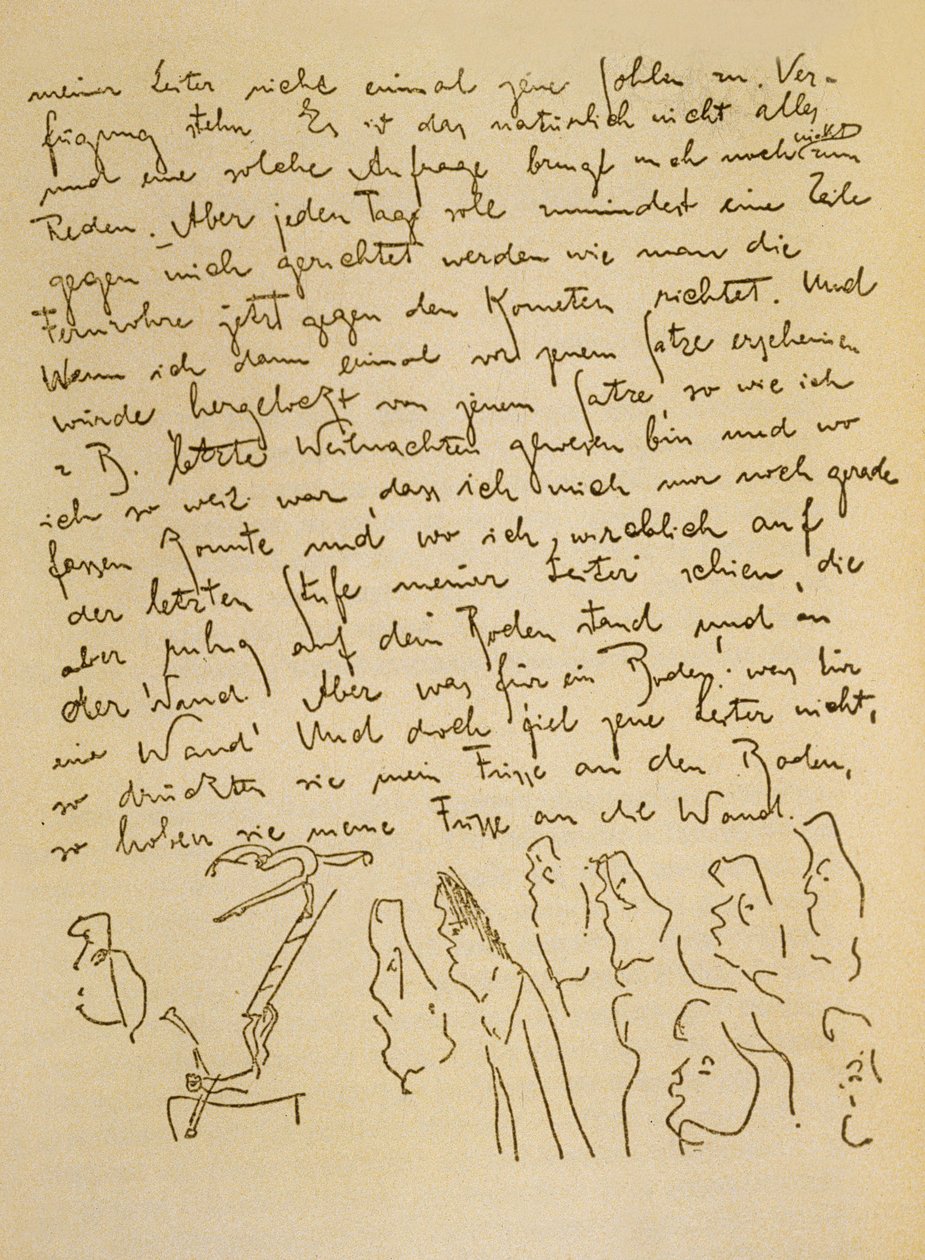 meiner Leiter nicht einmal jene Sohlen zu. Ver-
fügung stehn Es ist das natürlich nicht alles
und eine solche Anfrage bringt mich noch nicht zum
Reden. Aber jeden Tag soll zumindest eine Zeile
gegen mich gerichtet werden wie man die
Fernrohre jetzt gegen den Kometen richtet. Und
Wenn ich dann einmal vor jenem Satze erscheinen
würde, hergelockt von jenem Satze, so wie ich
z B. letzte Weihnachten gewesen bin und wo
ich so weit war, dass ich mich nur noch gerade
fassen konnte und wo ich wirklich auf
der letzten Stufe meiner Leiter schien, die
aber ruhig auf dem Boden stand und an
der Wand. Aber was für ein Boden! was für
eine Wand! Und doch fiel jene Leiter nicht,
so drückten sie mein Füsse an den Boden,
so hoben sie meine Füsse an die Wand.